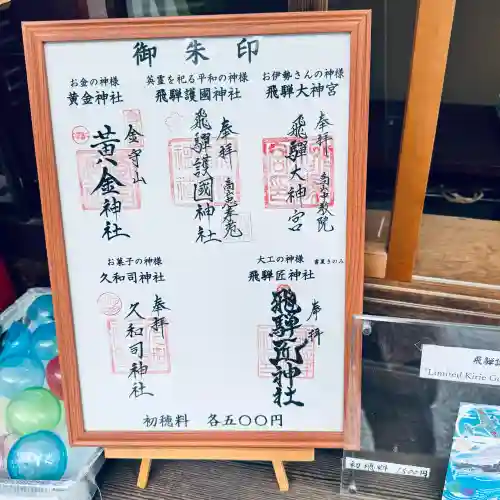 御朱印
お金の神様
黄金神社
英霊を祀る平和の神様
飛騨護國神社
お伊勢さんの神様
飛騨大神宮
奉拝
飛騨大神宮
奉拝
飛騨護國神社
金守山
黄金神社
お菓子の神様
久和司神社
大工の神様
書置きのみ
飛騨匠神社
奉拝
飛騨匠神社
奉拝
久和司神社
初穂料 各五〇〇円
飛騨
"Limited Kirie G
初穂料 1500円